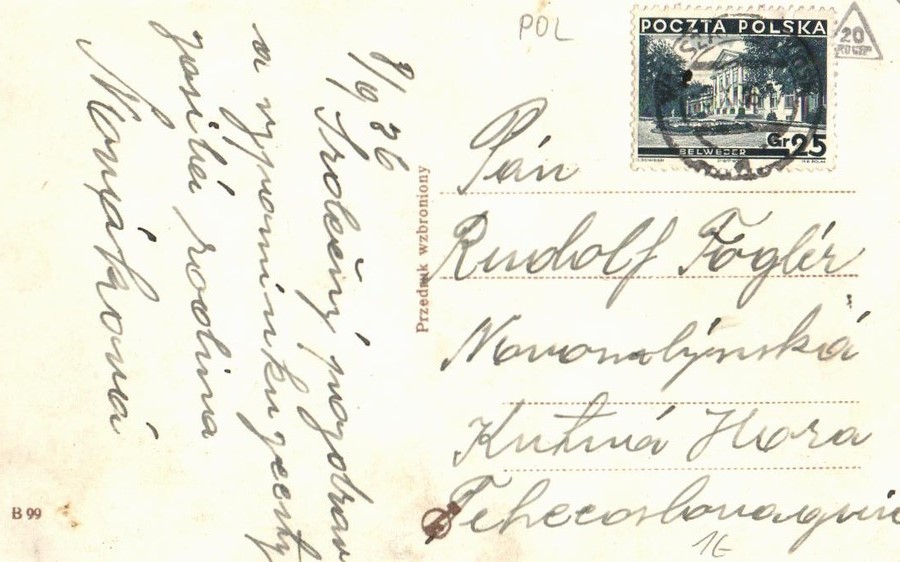 8/6 36
Srdečný pozdrav
a vzpomínku z cesty
posílá rodina
Nováková
Przedruk wzbroniony
B 99
POL
POCZTA POLSKA
BELWEDER
Gr 25
20
Pán
Rudolf Foglér
Novomlýnská
Kutná Hora
Tchecoslovaquie
1E